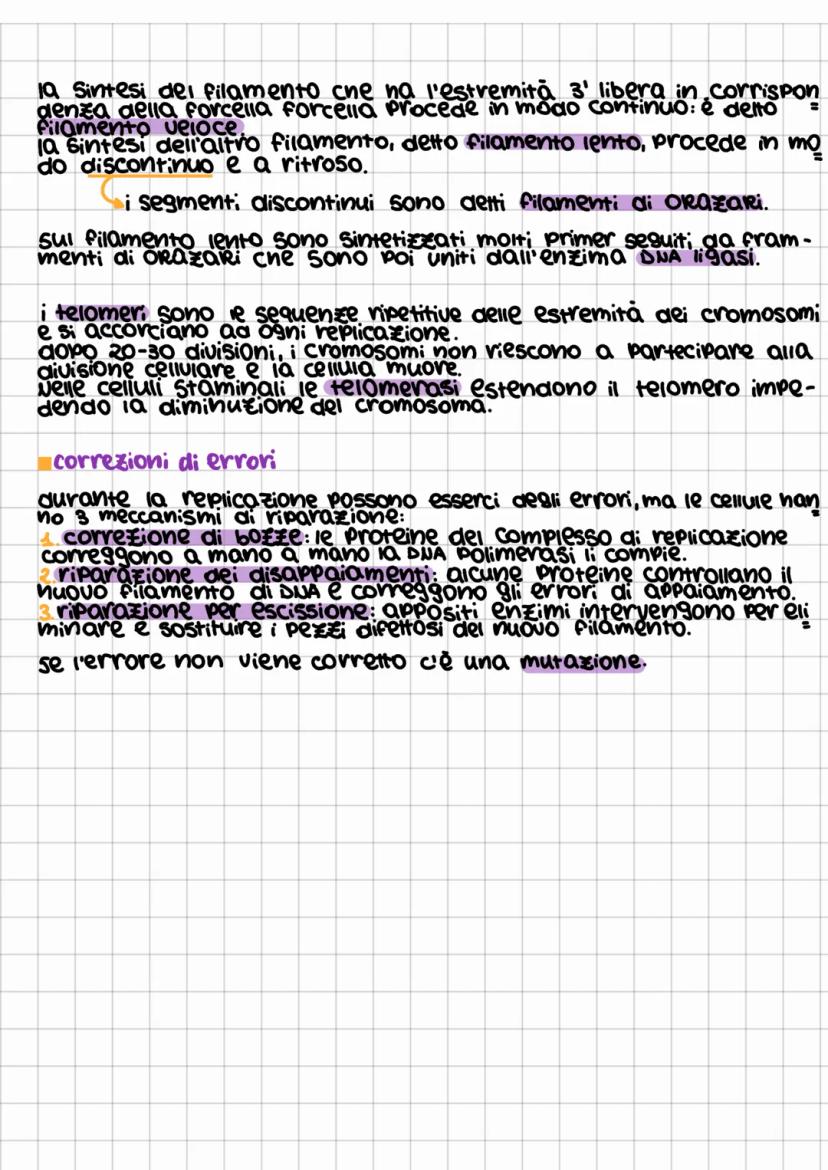 la sintesi del filamento che ha l'estremità 3' libera in corrispon=
denza della forcella forcella procede in modo continuo: è detto
filamento veloce
la sintesi dell'altro filamento, detto filamento lento, procede in mo=
do discontinuo e a ritroso.
i segmenti discontinui sono detti filamenti di ORAZARI.
sul filamento lento sono sintetizzati molti primer seguiti da fram-
menti di ORAZARI che sono poi uniti dall'enzima DNA ligasi.
i telomeri sono le sequenze ripetitive delle estremità dei cromosomi
e si accorciano ad ogni replicazione.
dopo 20-30 divisioni, i cromosomi non riescono a partecipare alla
divisione cellulare e la cellula muore.
Nelle celluli staminali le telomerasi estendono il telomero impe-
dendo la diminuzione del cromosoma.
correzioni di errori
durante la replicazione possono esserci degli errori, ma le cellule han=
no 3 meccanismi di riparazione:
1. correzione di bozze: le proteine del complesso di replicazione
correggono a mano a mano la DNA polimerasi li compie.
2. riparazione dei disappaiamenti: alcune proteine controllano il
nuovo filamento di DNA e correggono gli errori di appaiamento.
3. riparazione per escissione: appositi enzimi intervengono per eli=
minare e sostituire i pezzi difettosi del nuovo filamento.
se l'errore non viene corretto c'è una mutazione.